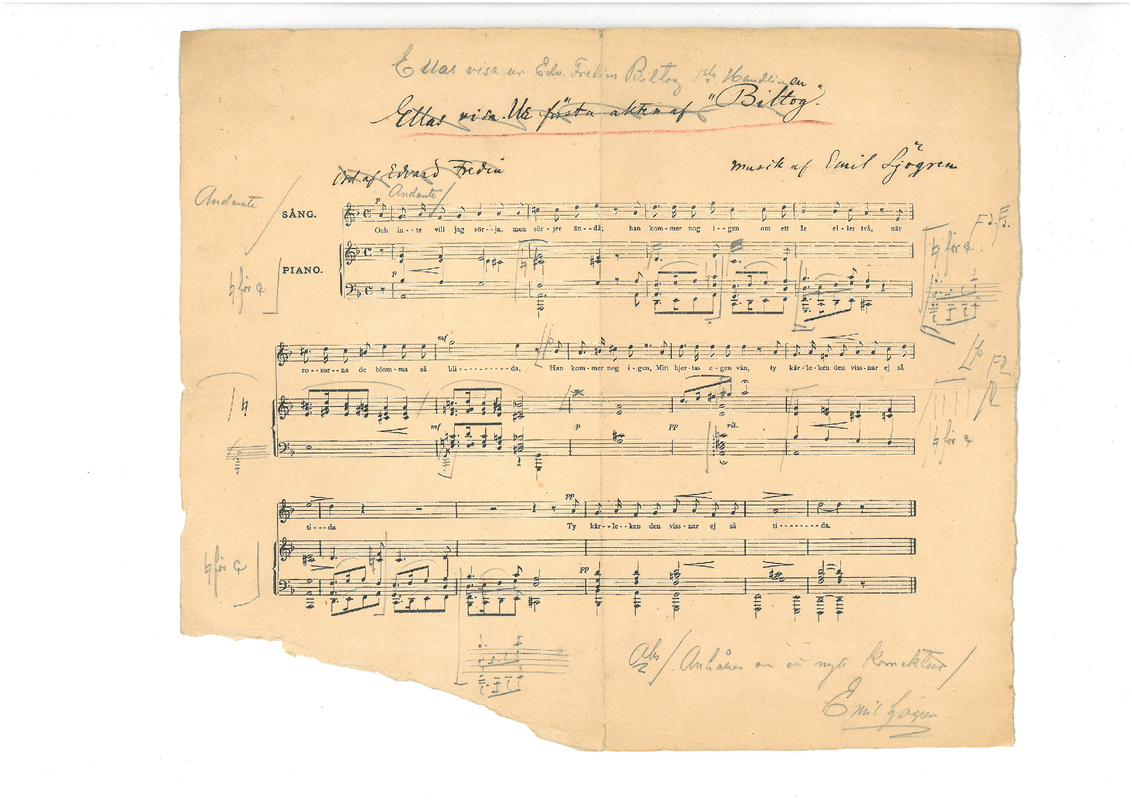 Ellas visa ur Edv. Fredins Biltog 1sta Handlingen
Ellas visa. Ur första akten af "Biltog".
Ord af Edvard Fredin
Musik af Emil Sjögren
Andante
Andante
SÅNG.
p
Och in--te vill jag sör--ja, men sör-jer än--då; han kom-mer nog i--gen om ett år el-ler två, när
♮ för ¢
PIANO.
p
♮ för ¢
mf
ro-sor-na de blom-ma så bli---------da, Han kom-mer nog i-gen, Mitt hjer-tas e-gen vän, ty kär-le-ken den viss-nar ej så
mf p pp rit.
♮ för ¢
pp
ti---da Ty kär--le--ken den viss-nar ej så ti--------da.
♮ för ¢
pp
Obs/ Anhåller om en ny korrektur/
Emil Sjögren